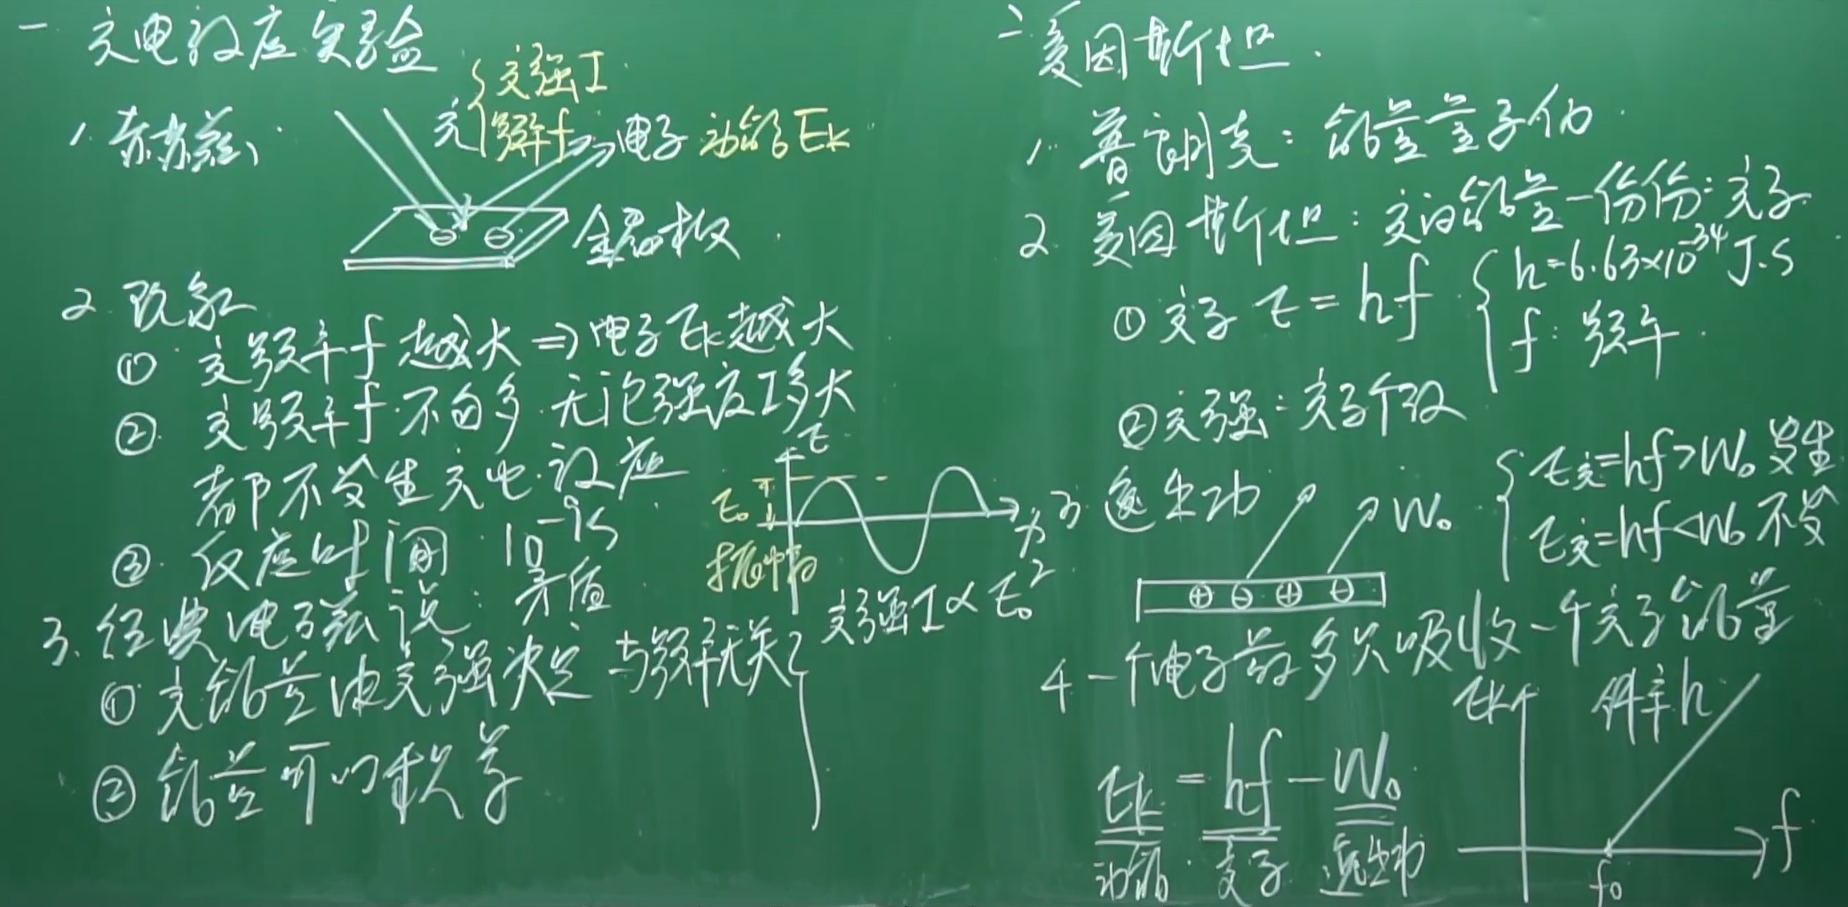 一 光电效应实验
1. 赫兹:
光{光强I
频率f
电子 动能Ek
金属板
2. 现象
① 光频率f越大⇒电子Ek越大
② 光频率f不白多 无论强度I多大
都不发生光电效应
③ 反应时间 10⁻⁹s
3. 经典电磁说: 矛盾
① 光能量由光强决定 与频率无关
② 能量可以积累
E
E₀
振幅
光强I∝E₀²
二 爱因斯坦.
1. 普朗克: 能量量子化.
2 爱因斯坦: 光的能量一份份: 光子
① 光子 E=hf
{h=6.63×10⁻³⁴J·S
f: 频率.
② 光强: 光子个数
3 逸出功
⊕ ⊖ ⊕ ⊖
W₀
{E光=hf>W₀ 发生
E光=hf<W₀ 不发
4 一个电子最多只吸收一个光子能量
Ek = hf - W₀
动能. 光子 逸出功
Ek
斜率h
f₀
f